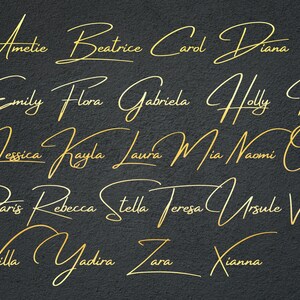 Amelie Beatrice Carol Diana
Emily Flora Gabriela Holly
Jessica Kayla Laura Mia Naomi
Paris Rebecca Stella Teresa Ursule
Yadira Zara Xianna